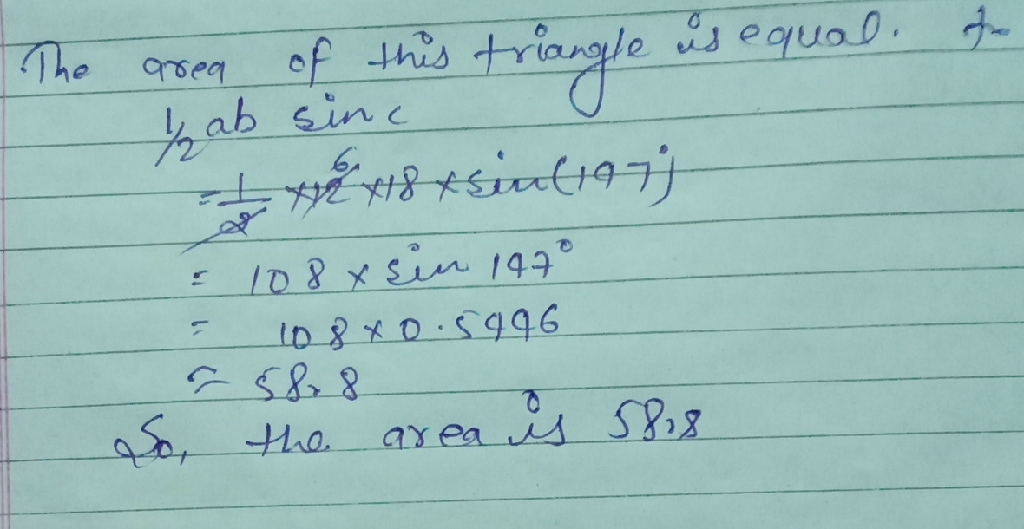 The area of this triangle is equal. to
1/2 ab sin c
= 1/2 × 12 6 × 18 × sin(147°)
= 108 × sin 147°
= 108 × 0.5446
= 58.8
So, the area is 58.8